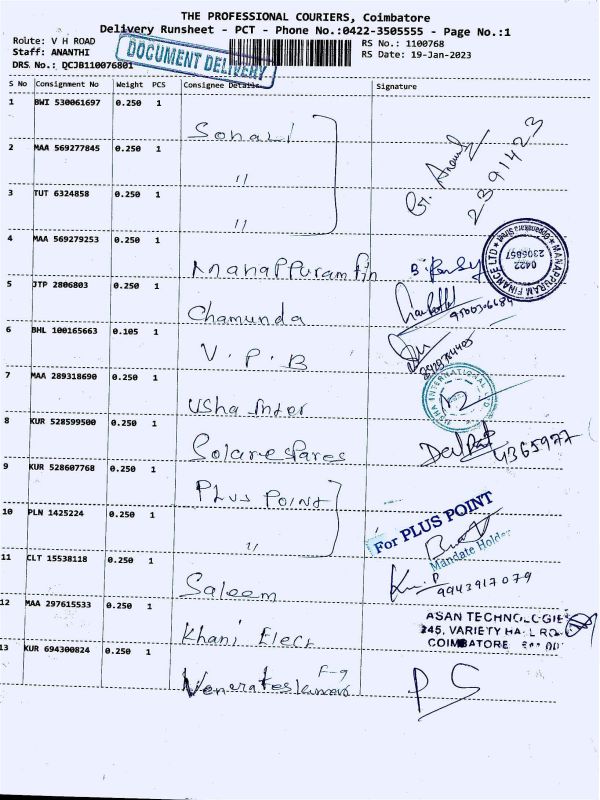 THE PROFESSIONAL COURIERS, Coimbatore
Delivery Runsheet - PCT - Phone No.:0422-3505555 - Page No.:1
Route: V H ROAD RS No.: 1100768
Staff: ANANTHI RS Date: 19-Jan-2023
DRS No.: QCJB110076801
DOCUMENT DELIVERY
S No Consignment No Weight PCS Consignee Details Signature
1 BWI 530061697 0.250 1 Sonali
2 MAA 569277845 0.250 1 "
3 TUT 6324858 0.250 1 "
2391423
4 MAA 569279253 0.250 1 Manappuram fin
MANAPPURAM FINANCE LTD
0422
2305857
5 JTP 2806803 0.250 1 Chamunda
6 BHL 100165663 0.105 1 V.P.B
7 MAA 289318690 0.250 1 Usha Inter
USHA INTERNATIONAL
8 KUR 528599500 0.250 1 Solarespares
4365977
9 KUR 528607768 0.250 1 Plus Point
10 PLN 1425224 0.250 1 "
For PLUS POINT
Mandate Holder
11 CLT 15538118 0.250 1 Saleem
9943917079
12 MAA 297615533 0.250 1 Khani Elect
ASAN TECHNOLOGIE
245, VARIETY HALL ROAD
COIMBATORE
13 KUR 694300824 0.250 1 F-9
PS